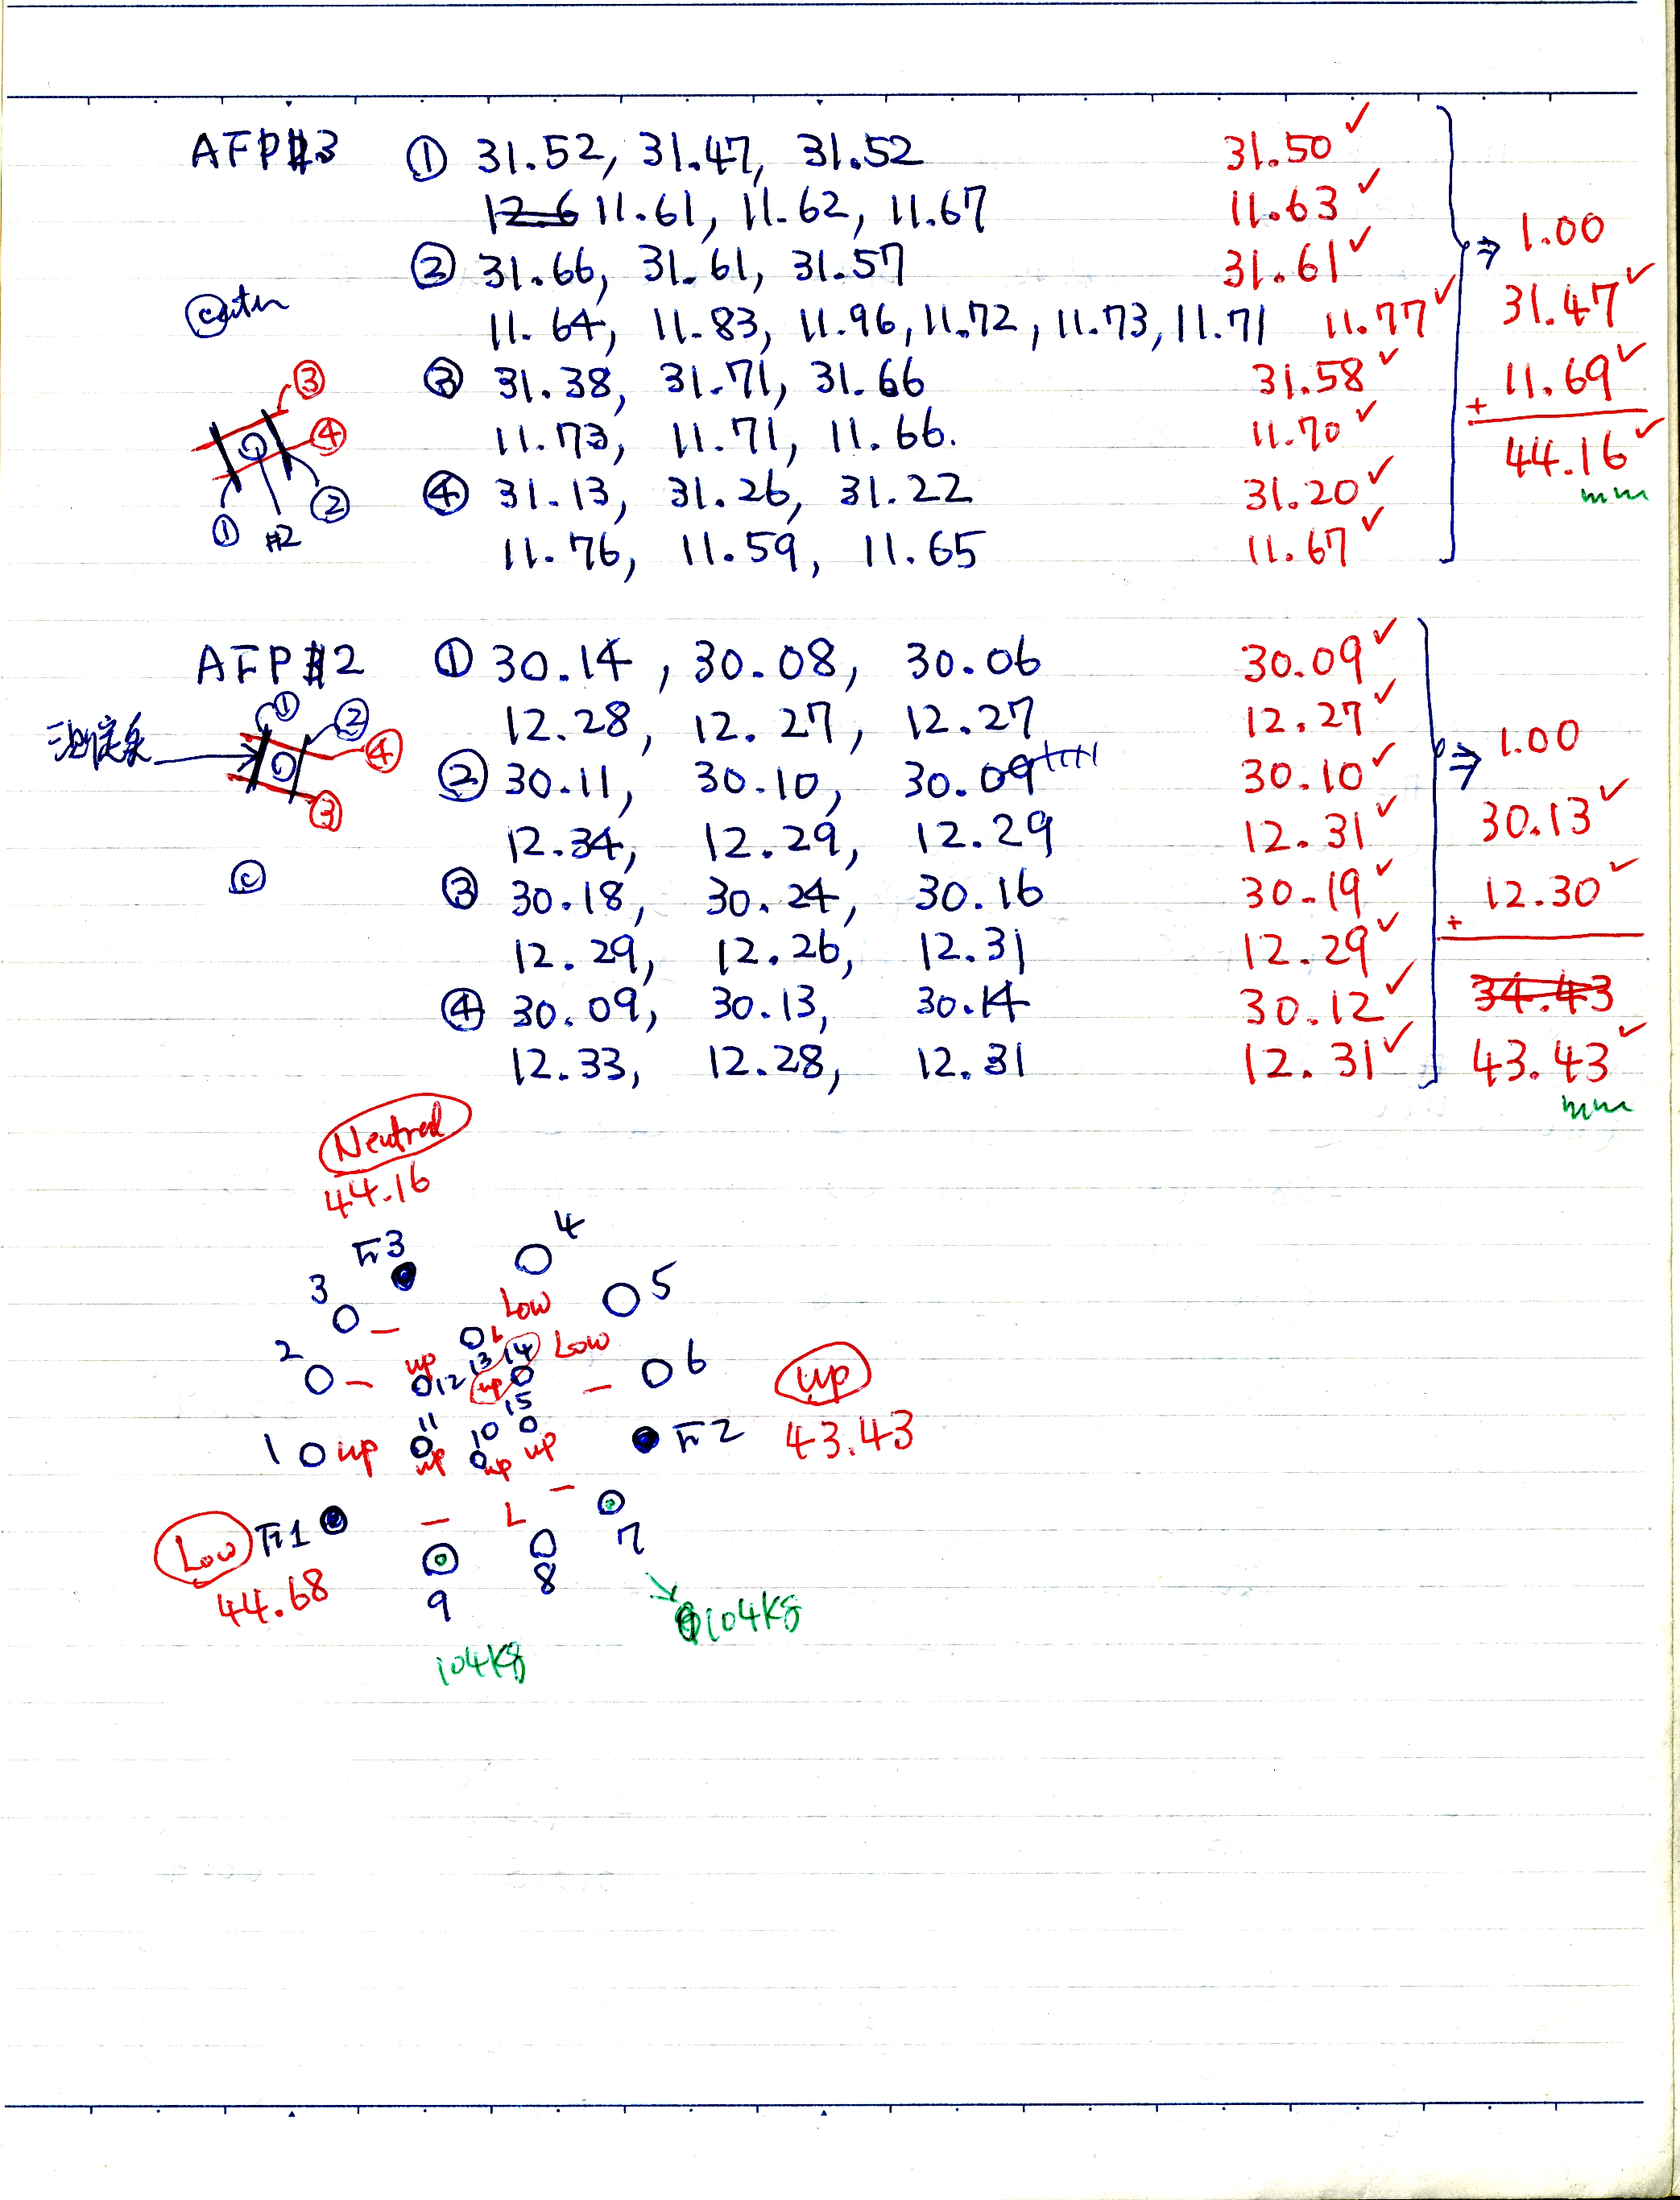 AFP#3 ① 31.52, 31.47, 31.52 31.50 ✓
12.6 11.61, 11.62, 11.67 11.63 ✓
⇒ 1.00
② 31.66, 31.61, 31.57 31.61 ✓
31.47 ✓
11.64, 11.83, 11.96, 11.72, 11.73, 11.71 11.77 ✓
③ 31.38, 31.71, 31.66 31.58 ✓
+ 11.69 ✓
11.73, 11.71, 11.66. 11.70 ✓
44.16 ✓
mm
④ 31.13, 31.26, 31.22 31.20 ✓
11.76, 11.59, 11.65 11.67 ✓
③
④
②
① #2
AFP#2 ① 30.14, 30.08, 30.06 30.09 ✓
12.28, 12.27, 12.27 12.27 ✓
⇒ 1.00
② 30.11, 30.10, 30.09 30.10 ✓
30.13 ✓
12.34, 12.29, 12.29 12.31 ✓
③ 30.18, 30.24, 30.16 30.19 ✓
+ 12.30 ✓
12.29, 12.26, 12.31 12.29 ✓
34.43
④ 30.09, 30.13, 30.14 30.12 ✓
43.43 ✓
mm
12.33, 12.28, 12.31 12.31 ✓
① ②
④
③
©
Neutral
44.16
3 4
3 5
Low
L Low
2 up 13 14 6
12 up
15
up
43.43
11 10
1 up up up up
2
L
Low 1
44.68
7
8
9
104Kg
104Kg